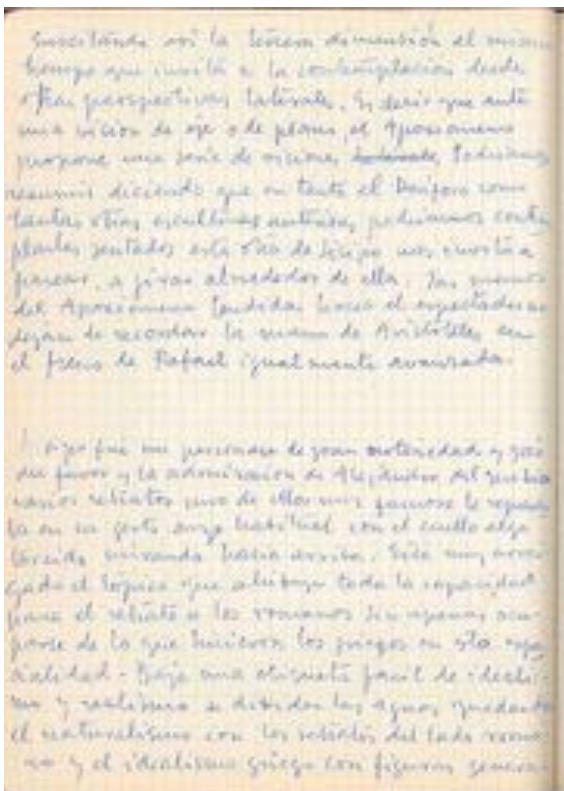 suscitando así la tercera dimensión al mismo
tiempo que invita a la contemplación desde
otras perspectivas laterales. Es decir que ante
una visión de eje o de plano, el Apoxiomeno
propone una serie de visiones Podríamos
resumir diciendo que en tanto el Doríforo como
tantas otras esculturas anteriores podríamos contem
plarlas sentados esta obra de Lisipo nos invita a
pasear, a girar alrededor de ella. Las manos
del Apoxiomeno tendidas hacia el espectador no
dejan de recordar la mano de Aristóteles en
el fresco de Rafael igualmente avanzada.
Lisipo fue un personaje de gran notoriedad y gozó
del favor y la admiración de Alejandro del que hizo
varios retratos uno de ellos muy famoso le represen
ta en un gesto habitual con el cuello algo
torcido mirando hacia arriba. Está muy arrai
gado el tópico que atribuye toda la capacidad
para el retrato a los romanos sin apenas ocu
parse de lo que hicieron los griegos en esta espe
cialidad. Bajo una etiqueta fácil de idealis
mo y realismo se dividen las aguas quedando
el naturalismo con los retratos del lado roma
no y el idealismo griego con figuras genera